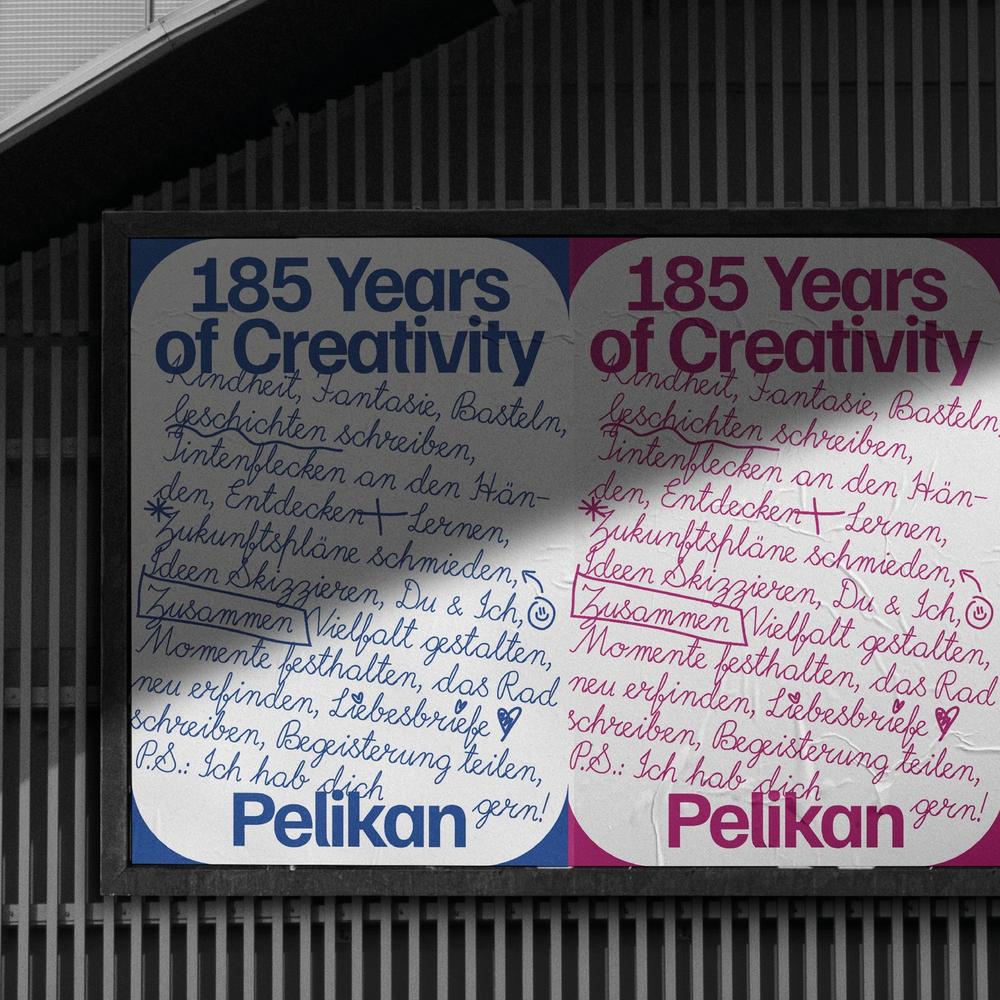 185 Years
of Creativity
Kindheit, Fantasie, Basteln,
Geschichten schreiben,
Tintenflecken an den Hän-
den, Entdecken + Lernen,
Zukunftspläne schmieden,
Ideen Skizzieren, Du & Ich,
Zusammen Vielfalt gestalten,
Momente festhalten, das Rad
neu erfinden, Liebesbriefe
schreiben, Begeisterung teilen,
P.S.: Ich hab dich
gern!
Pelikan
185 Years
of Creativity
Kindheit, Fantasie, Basteln,
Geschichten schreiben,
Tintenflecken an den Hän-
den, Entdecken + Lernen,
Zukunftspläne schmieden,
Ideen Skizzieren, Du & Ich,
Zusammen Vielfalt gestalten,
Momente festhalten, das Rad
neu erfinden, Liebesbriefe
schreiben, Begeisterung teilen,
P.S.: Ich hab dich
gern!
Pelikan